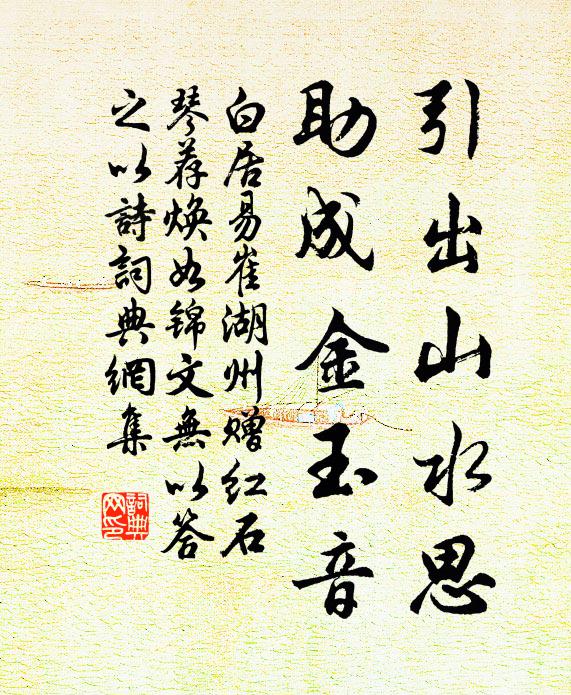 引出山水思
助成金玉音
白居易崔湖州赠红石
琴荐焕如锦文無以答
之以詩詞典網集
詞典网印